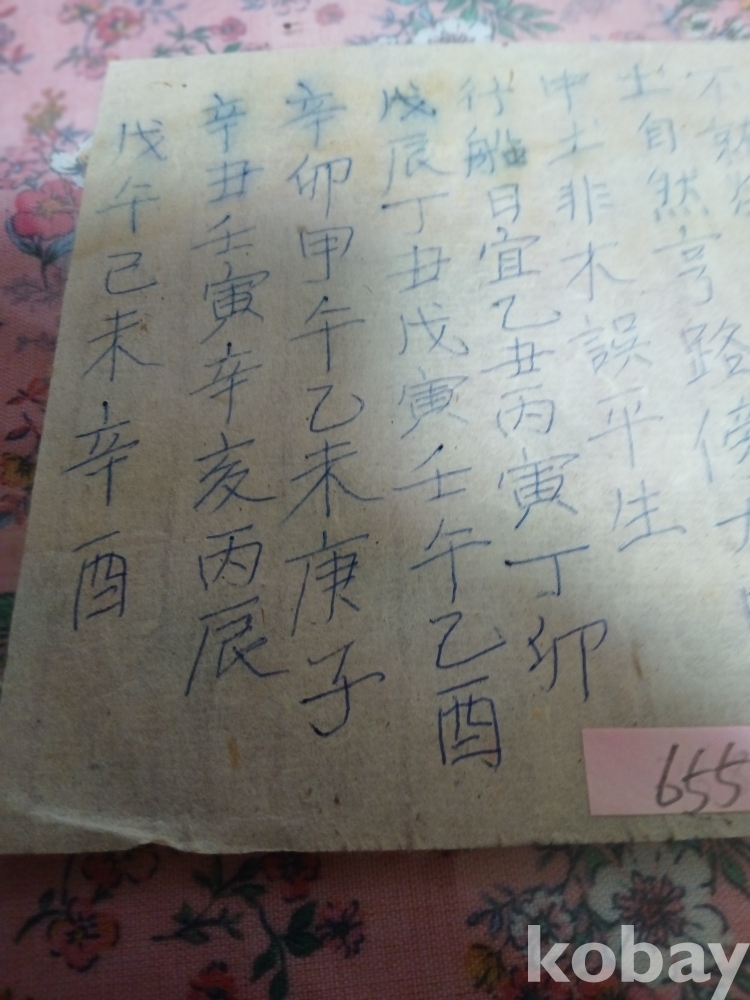 不
土自然亨路傍大
中土非木誤平生
行船日宜乙丑丙寅丁卯
戊辰丁丑戊寅壬午乙酉
辛卯甲午乙未庚子
辛丑壬寅辛亥丙辰
戊午己未辛酉
655
kobay